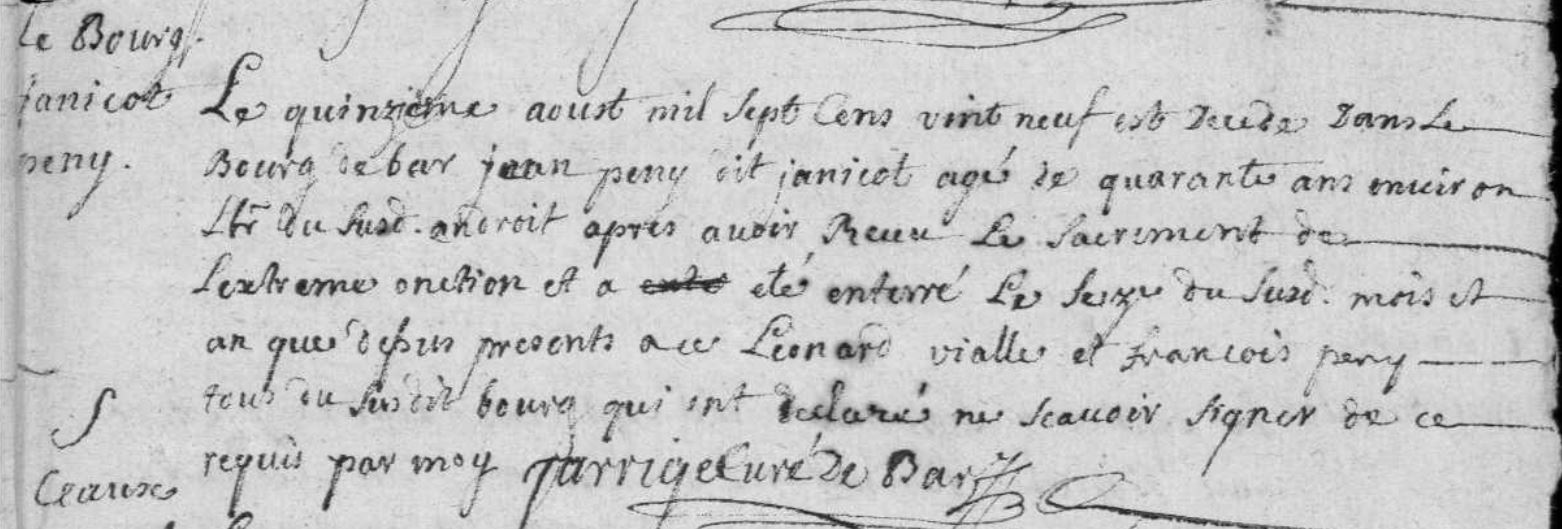 Le Bourg.
janicot
peny.
Le quinzieme aoust mil sept Cens vint neuf est decede Dans Le
Bourg de bar jean peny dit janicot agé de quarante ans enuiron
du susd. androit apres auoir Receu Le sacrement de
Lextreme onction et a eté enterré Le seze du susd. mois et
an que dessus presents a ce Léonard vialle et francois peny
tous du susdit bourg qui ont declaré ne scauoir signer de ce
requis par moy Jarrige Curé de Bar
S
Ceaux